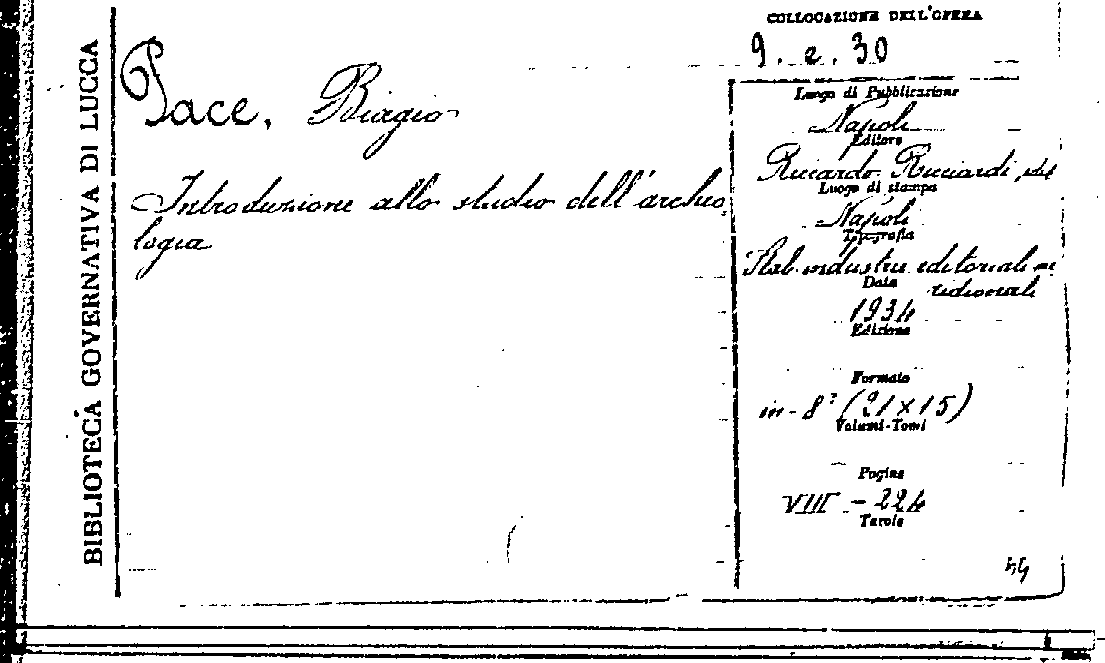 BIBLIOTECA GOVERNATIVA DI LUCCA
COLLOCAZIONE DELL'OPERA
9. e. 30
Pace, Biagio
Introduzione allo studio dell'archeo
logia
Luogo di Pubblicazione
Napoli
Editore
Riccardo Ricciardi,
Luogo di stampa
Napoli
Tipografia
Stab. industrie editoriali me
ridionali
Data
1934
Edizione
Formato
in-8° (21×15)
Volumi-Tomi
Pagine
VIII - 224
Tavole